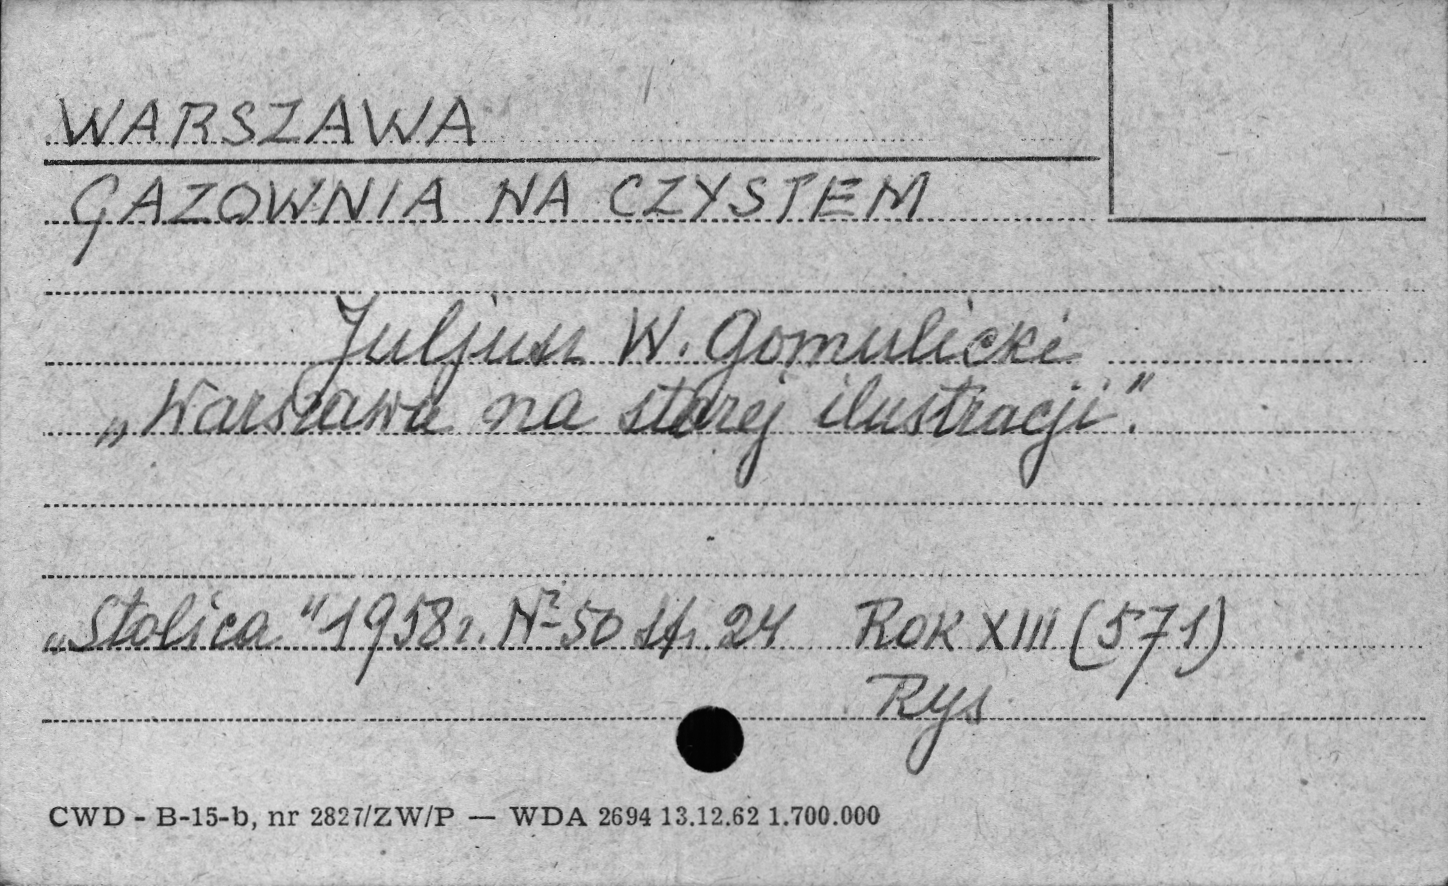 WARSZAWA
GAZOWNIA NA CZYSTEM
Juljusz W. Gomulicki
„Warszawa na starej ilustracji”.
„Stolica” 1958 r. Nr 50 str. 24 Rok XIII (571)
Rys
CWD - B-15-b, nr 2827/ZW/P — WDA 2694 13.12.62 1.700.000